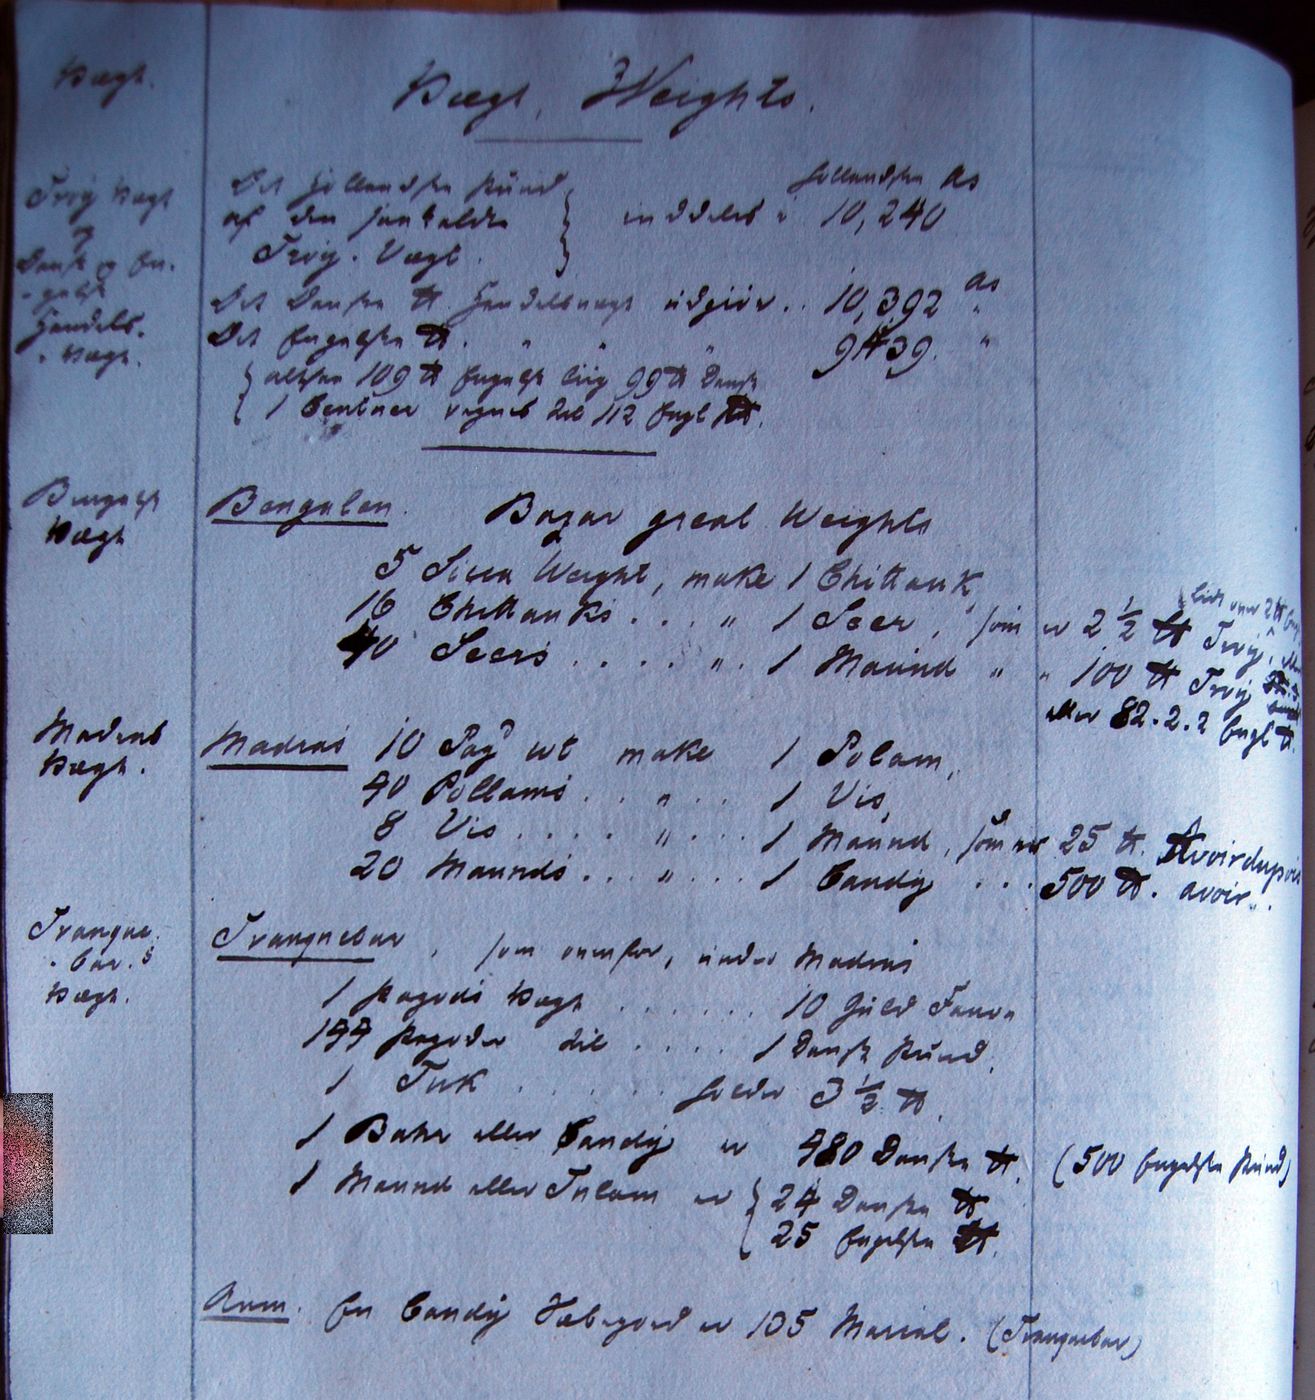 Vægt.
Vægt, Weights.
Troÿ Vægt
og
Dansk og En-
-gelsk
Handels-
-Vægt.
Det Hollandske Pund
af den saakaldte
Troÿ. Vægt.
inddeles i
Hollandske As
10,240
Det Danske ℔ Handelsvægt udgiör . . 10,392 As
Det Engelske ℔. " " " 9439. "
altsaa 109 ℔ Engelsk liig 99 ℔ Dansk
1 Centner regnes til 112 Engl ℔.
Bengalsk
Vægt
Bengalen. Bazar great Weights
5 Sicca Weight, make 1 Chittank,
16 Chittanks . . . " 1 Seer, som er 2 ½ ℔ Troÿ,
40 Seers . . . . " . 1 Maund " " 100 ℔ Troÿ
eller 82.2.2 Engl ℔.
Madras
Vægt.
Madras 10 Pagˢ wt make 1 Polam,
40 Pollams . . " . . 1 Vis,
8 Vis . . . . " . . . 1 Maund, som er 25 ℔. Avoirdupois
20 Maunds . . . " . . . 1 Candÿ . . . 500 ℔. avoir. .
Tranque-
-bar.s
Vægt.
Tranquebar, som ovenfor, under Madras
1 Pagods Vægt . . . . . . . 10 Guld Fanoe
144 Pagoder til . . . . . 1 Dansk Pund.
1 Tuk . . . . . . holder 3 ½ ℔.
1 Bahr eller Candÿ er 480 Danske ℔. (500 Engelske Pund)
1 Maund eller Tulam er 24 Danske ℔
25 Engelske ℔.
Anm. En Candÿ er 105 Marcal. (Tranquebar)